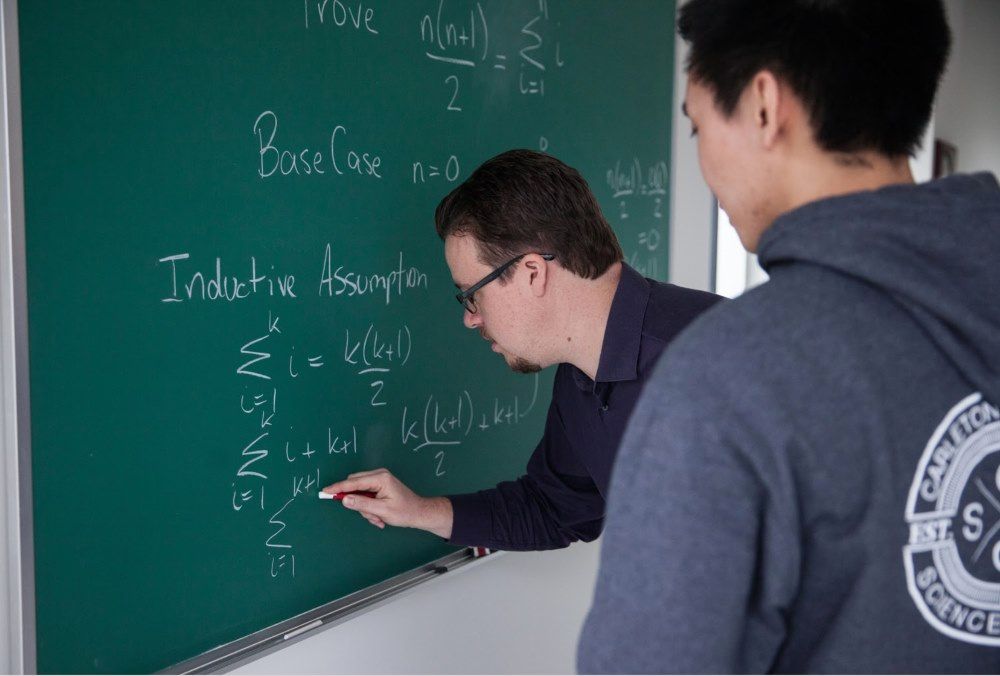 Prove n(n+1)/2 = n∑i=1 i
Base Case n=0
0
n(n+1)/2 = 0(1)/2
=0
Inductive Assumption
k∑i=1 i = k(k+1)/2
k∑i=1 i + k+1 k(k+1)/2 + k+1
k+1∑i=1
CARLETON
EST.
S
SCIENCE